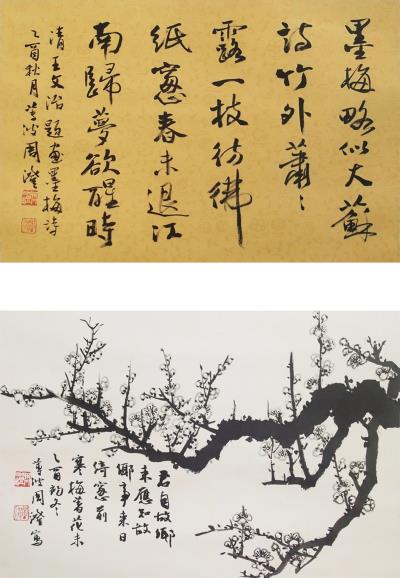 墨梅略似大蘇
詩竹外蕭〻
露一枝彷彿
紙窻春未退江
南歸夢欲醒時
清王文治題畫墨梅詩
乙酉秋月蓴波周澄
君自故鄉
來應知故
鄉事來日
綺窻前
寒梅著花未
乙酉初冬
蓴波周澄寫